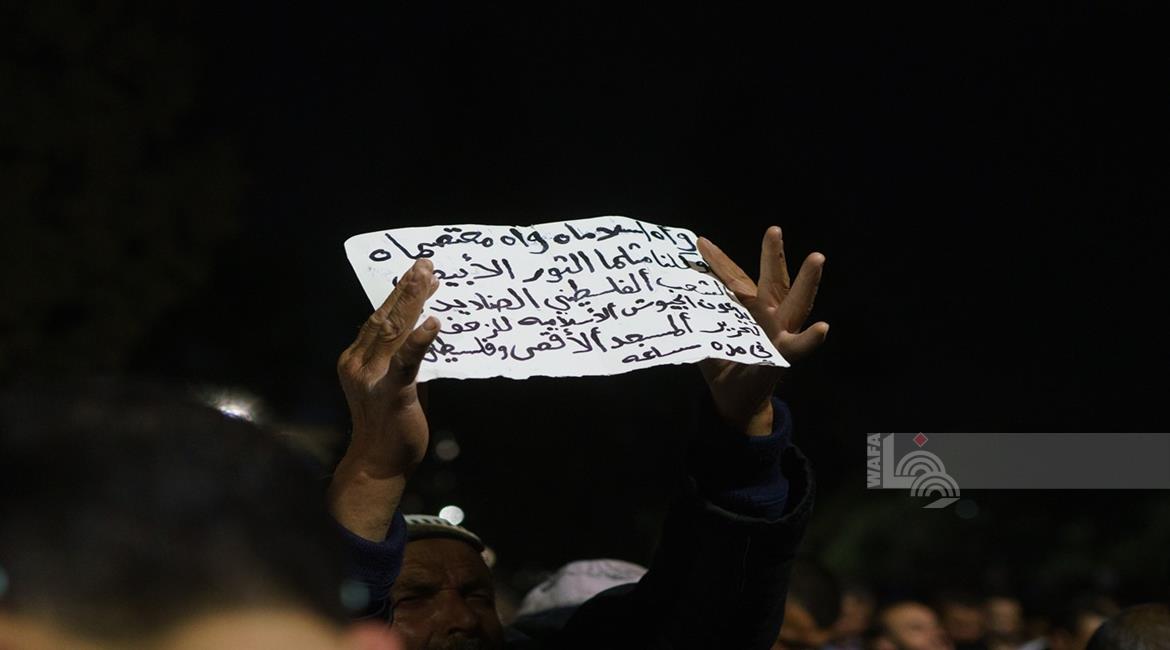 واه إسلاماه واه معتصماه
قتلنا مثلما الثور الأبيض
الشعب الفلسطيني الصناديد
يدعون الجيوش الإسلامية للزحف
لتحرير المسجد الأقصى وفلسطين
في مده ساعه
WAFA